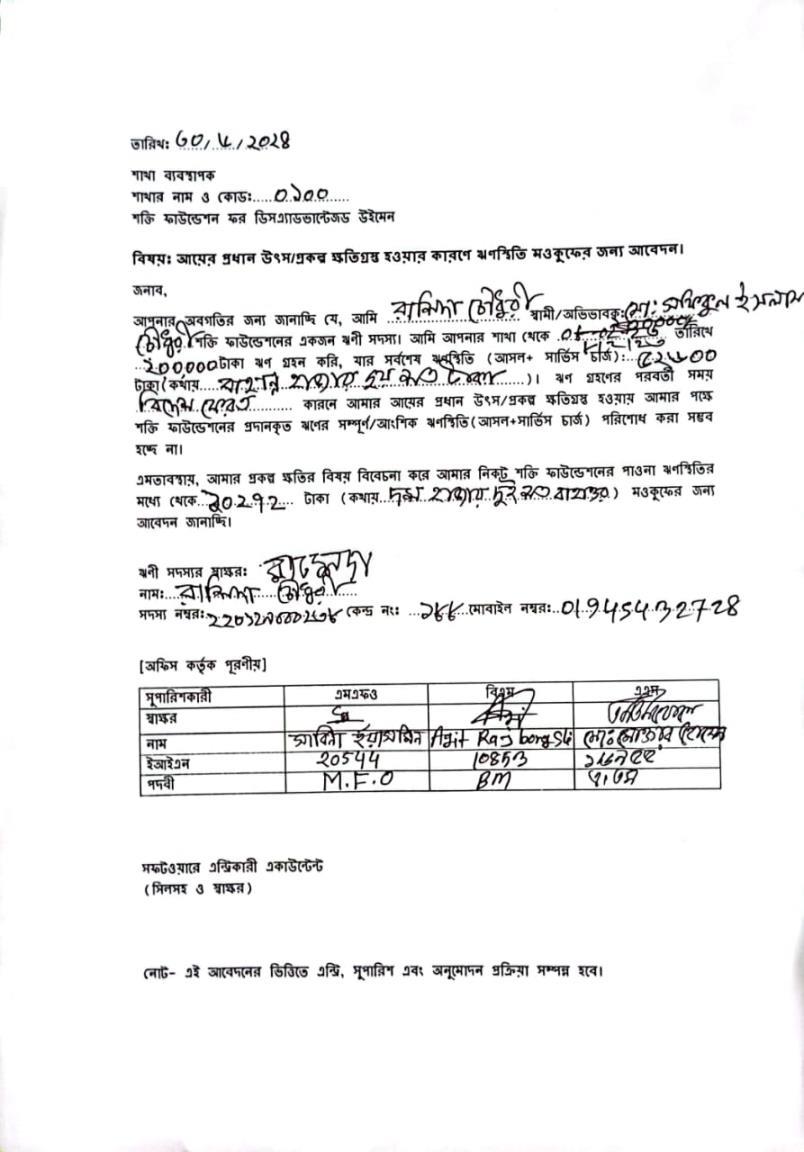 তারিখ: ৩০/৬/২০২৪
শাখা ব্যবস্থাপক
শাখার নাম ও কোড:.....০১০০......
শক্তি ফাউন্ডেশন ফর ডিসএ্যাডভান্টেজড উইমেন
বিষয়: আয়ের প্রধান উৎস/প্রকল্প ক্ষতিগ্রস্থ হওয়ার কারণে ঋণস্থিতি মওকুফের জন্য আবেদন।
জনাব,
আপনার অবগতির জন্য জানাচ্ছি যে, আমি রাশিদা চৌধুরী স্বামী/অভিভাবক: মো: সফিকুল ইসলাম
চৌধুরী শক্তি ফাউন্ডেশনের একজন ঋনী সদস্য। আমি আপনার শাখা থেকে তারিখে
২০০০০০টাকা ঋণ গ্রহন করি, যার সর্বশেষ ঋণস্থিতি (আসল+ সার্ভিস চার্জ): ৫২৬০০
টাকা (কথায়.... বায়ান্ন হাজার ছয় শত টাকা ......)। ঋণ গ্রহণের পরবর্তী সময়
বিদেশ ফেরত........... কারনে আমার আয়ের প্রধান উৎস/প্রকল্প ক্ষতিগ্রস্থ হওয়ায় আমার পক্ষে
শক্তি ফাউন্ডেশনের প্রদানকৃত ঋণের সম্পূর্ণ/আংশিক ঋণস্থিতি(আসল+সার্ভিস চার্জ) পরিশোধ করা সম্ভব
হচ্ছে না।
এমতাবস্থায়, আমার প্রকল্প ক্ষতির বিষয় বিবেচনা করে আমার নিকট শক্তি ফাউন্ডেশনের পাওনা ঋণস্থিতির
মধ্যে থেকে...১০২৭২.... টাকা (কথায়...দশ হাজার দুই শত বাহাত্তর) মওকুফের জন্য
আবেদন জানাচ্ছি।
ঋনী সদস্যর স্বাক্ষর:
নাম:... রাশিদা .... চৌধুরী ......
সদস্য নম্বর: কেন্দ্র নং: ..১৬৮...মোবাইল নম্বর:..01945432728
[অফিস কর্তৃক পূরণীয়]
সুপারিশকারী এমএফও বিএম এএম
স্বাক্ষর
নাম সাবিনা ইয়াসমিন Ajit Rajbongshi মো:
ইআইএন 20544 10853
পদবী M.F.O BM এ.এম
সফটওয়ারে এন্ট্রিকারী একাউন্টেন্ট
(সিলসহ ও স্বাক্ষর)
নোট- এই আবেদনের ভিত্তিতে এন্ট্রি, সুপারিশ এবং অনুমোদন প্রক্রিয়া সম্পন্ন হবে।